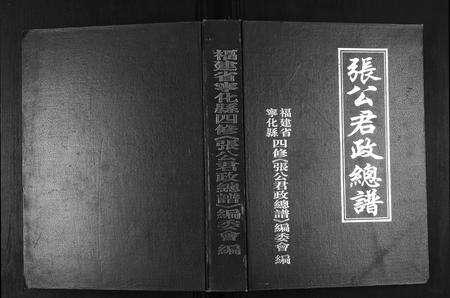 張公君政總譜
福建省
寧化縣
四修《張公君政總譜》編委會 編
福建省寧化縣四修《張公君政總譜》編委會編